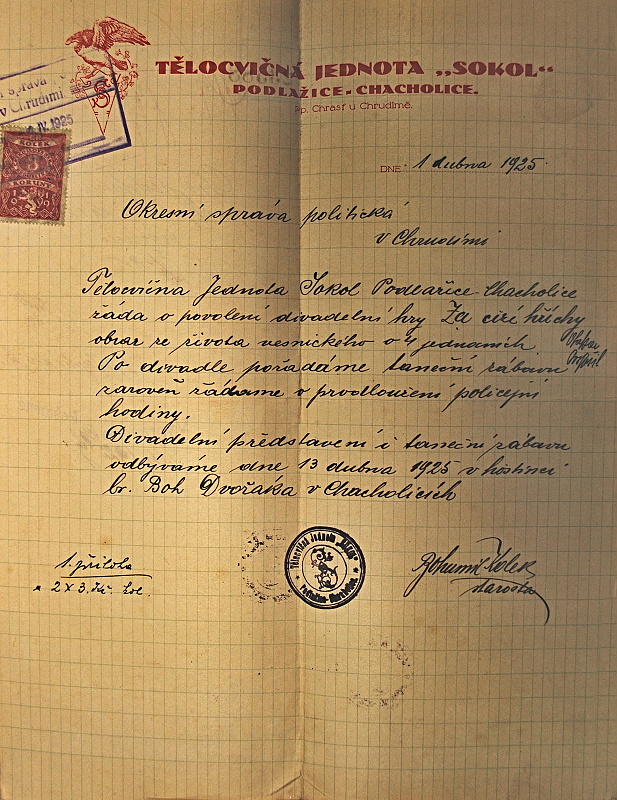 TĚLOCVIČNÁ JEDNOTA „SOKOL“
PODLAŽICE-CHACHOLICE.
p. Chrast u Chrudimě.
správa
v Chrudimi
IV. 1925
KOLEK
3
KORUNY
1919
DNE 1 dubna 1925.
Okresní správa politická
v Chrudimi
Tělocvična Jednota Sokol Podlažice-Chacholice
žáda o povolení divadelní hry Za cizí hříchy
obraz ze života vesnického o 4 jednanich
Po divadle pořádáme taneční zábavu
zaroveň žádame v prodloužení policejní
hodiny.
Divadelní představení i taneční zábavu
odbýváme dne 13 dubna 1925 v hostinci
br. Boh Dvořaka v Chacholicích
1. příloha
a 2 x 3. Kč. kol.
Tělocvičná Jednota „Sokol“
Podlažice-Chacholice
Bohumil
starosta